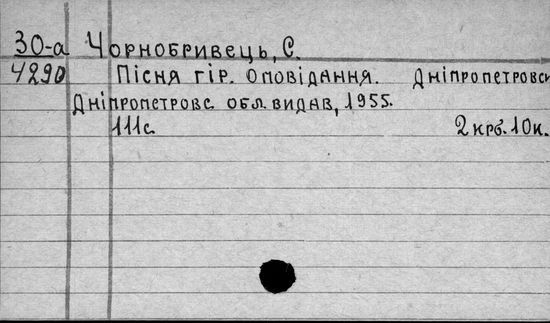 30-а Чорнобривець, С.
4290 Пісня гір. Оповідання. Дніпропетровськ
Дніпропетровс. обл. видав, 1955.
111с. 2 крб. 10к.